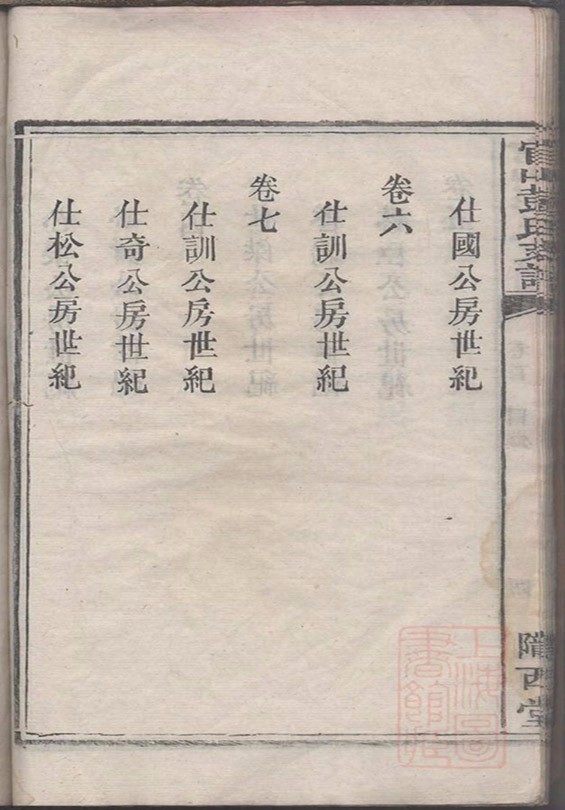 仕國公房世紀
卷六
仕訓公房世紀
卷七
仕訓公房世紀
仕奇公房世紀
仕松公房世紀
彭氏
隴西堂
上海圖書館藏